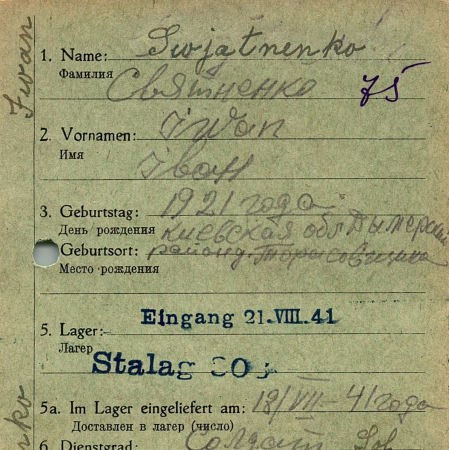 1. Name: Swjatnenko
Фамилия Святненко
75
2. Vornamen: Iwan
Имя Іван
3. Geburtstag: 1921 года
День рождения Киевская обл Дымерский
Geburtsort: район д.
Место рождения
Eingang 21.VIII.41
5. Lager:
Лагерь
Stalag
5a. Im Lager eingeliefert am: 18/VII-41 года
Доставлен в лагер (число)
6. Dienstgrad: Солдат Sol
Iwan